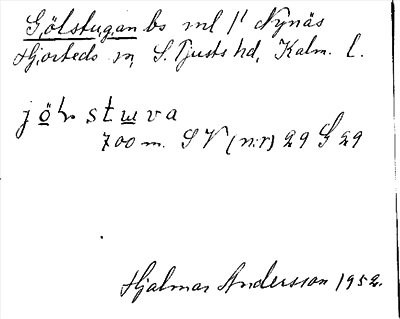 Gölstugan bs ml /1 Nynäs
Hjorteds sn, S. Tjusts hd, Kalm. l.
jöḷ stuva
700 m. SV (n:r) 29 G 29
Hjalmar Andersson 1952.